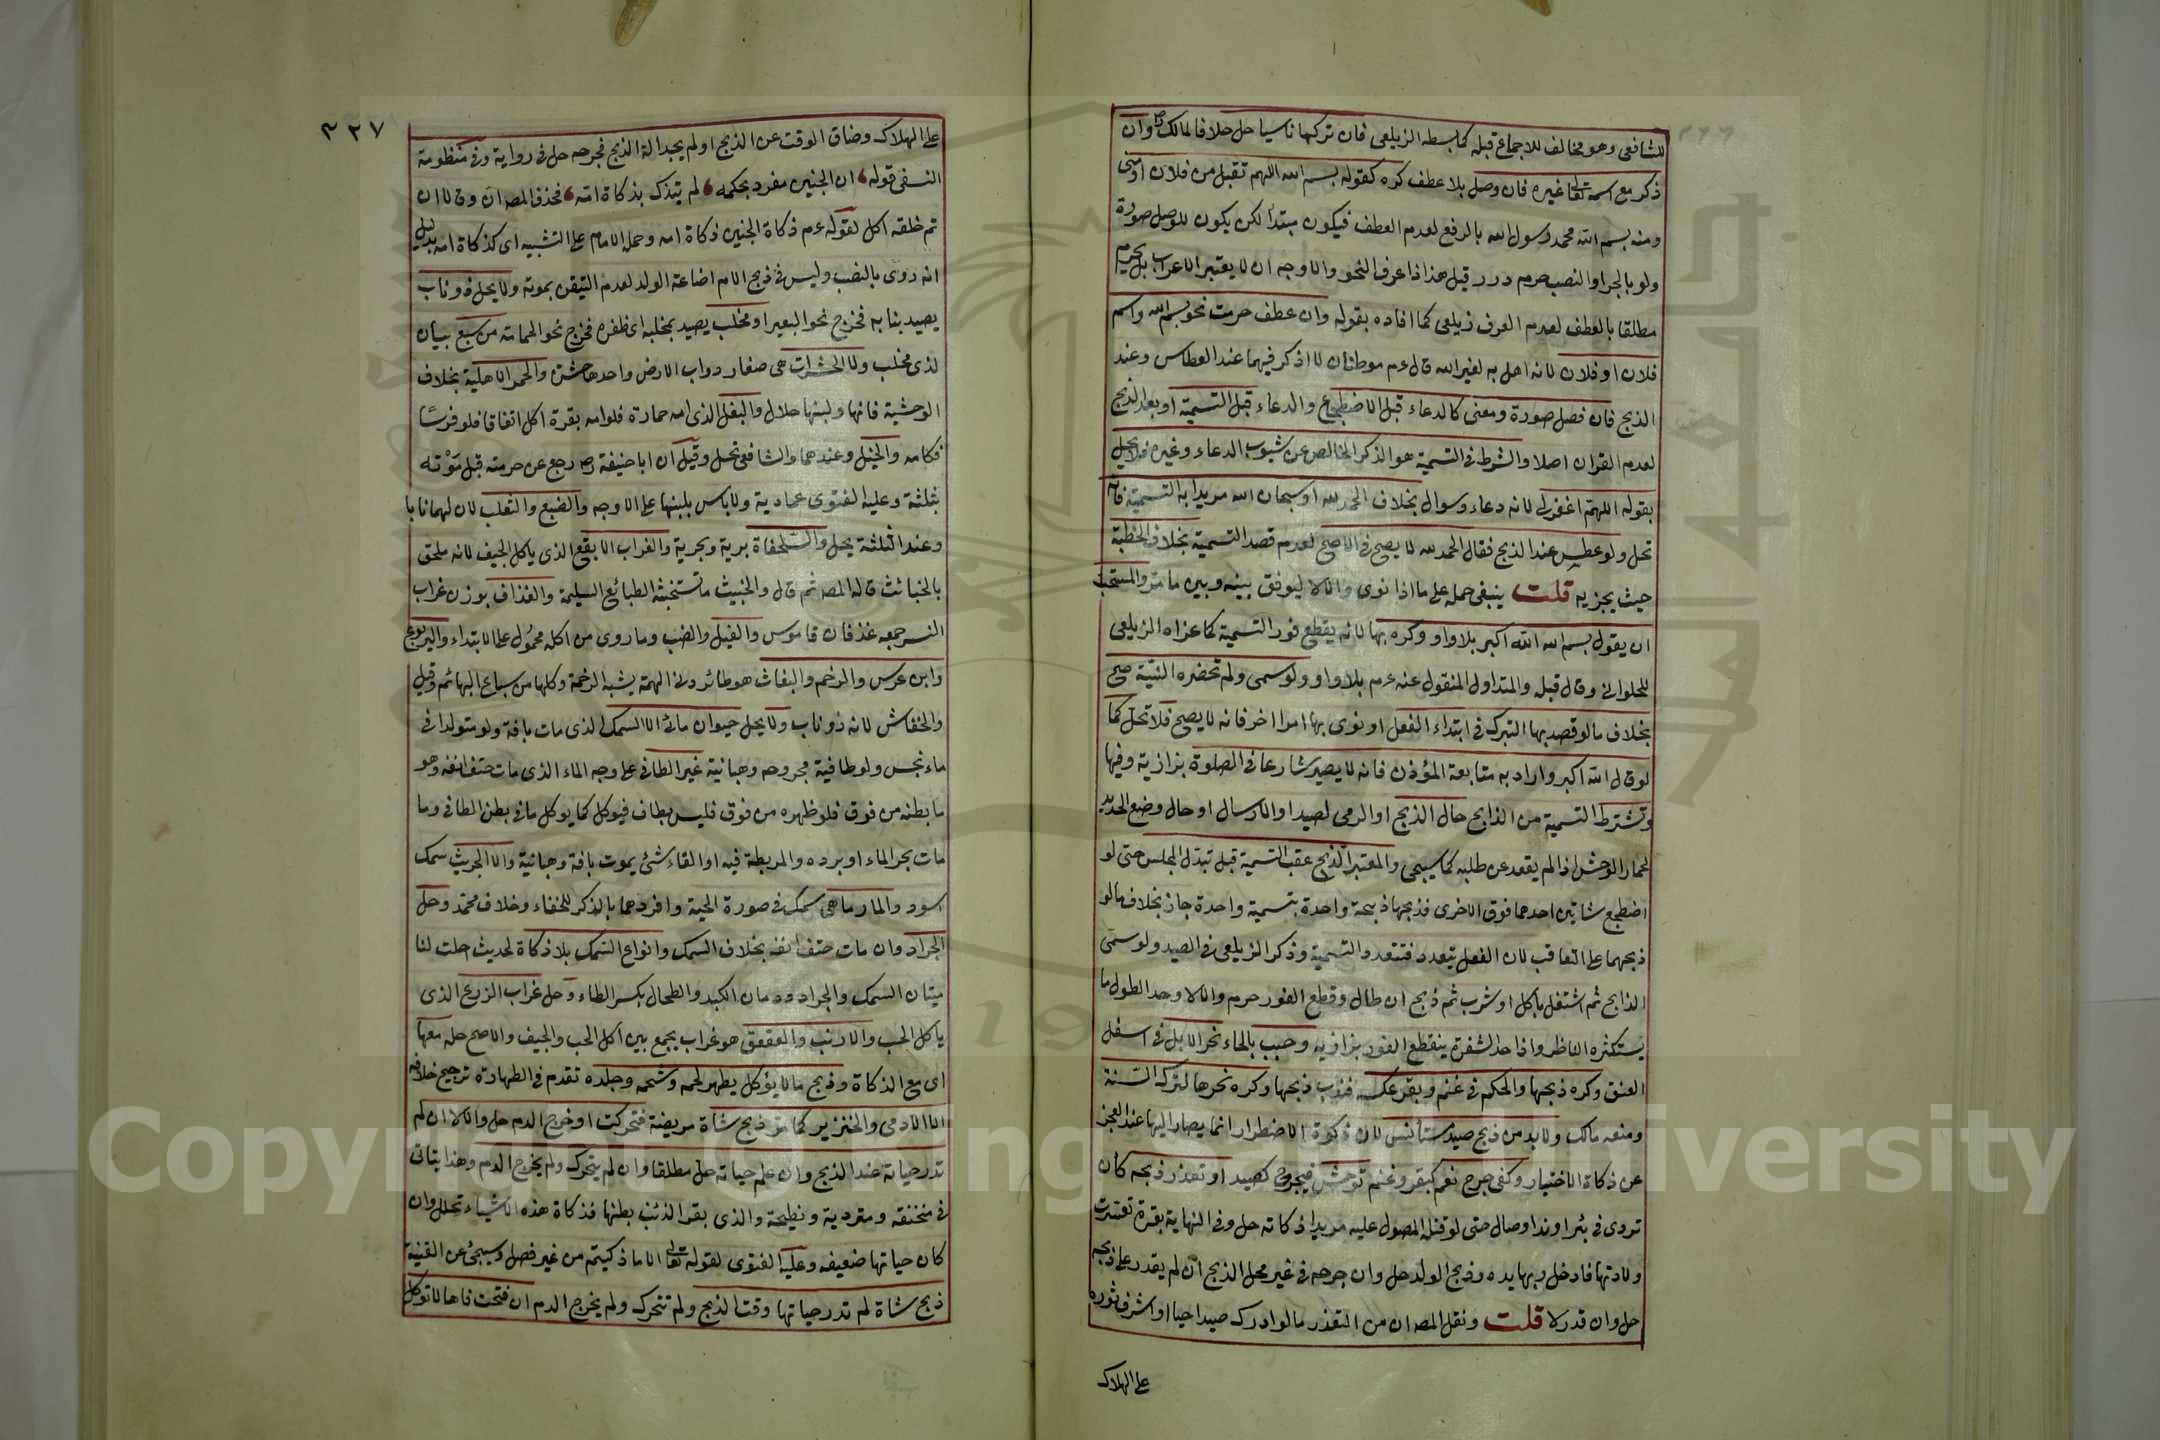 للشافعى وهو مخالف للاجماع قبله كما بسطه الزيلعى فان تركها ناسيا حل خلافا لمالك وان
ذكر مع اسمه تعا غيره فان وصل بلا عطف كره كقوله بسم الله اللهم تقبل من فلان او منى
ومنه بسم الله محمد رسول الله بالرفع لعدم العطف فيكون مبتدأ لكن يكون للوصل صورة
ولو بالجر او النصب حرم درر قيل هذا اذا عرف النحو والاوجه ان لا يعتبر الاعراب بل يحرم
مطلقا بالعطف لعدم العرف زيلعى كما افاده بقوله وان عطف حرمت نحو بسم الله واسم
فلان او فلان لانه اهل به لغير الله قال عم موطنان لا اذكر فيهما عند العطاس وعند
الذبح فان فصل صورة ومعنى كالدعاء قبل الاضطجاع والدعاء قبل التسمية او بعد الذبح
لعدم القران اصلا والشرط فى التسمية هو الذكر الخالص عن شوب الدعاء وغيره فلا يحل
بقوله اللهم اغفر لى لانه دعاء وسوال بخلاف الحمد لله او سبحان الله مريدا به التسمية فانه
تحل ولو عطس عند الذبح فقال الحمد لله لا يصح فى الاصح لعدم قصد التسمية بخلاف الخطبة
حيث يجزيه قلت ينبغى حمله على ما اذا نوى والا لا ليوفق بينه وبين ما مر والمستحب
ان يقول بسم الله الله اكبر بلا واو وكره بها لانه يقطع فور التسمية كما عزاه الزيلعى
للحلوانى وقال قبله والمتداول المنقول عنه عم بلا واو ولو سمى ولم تحضره النية صح
بخلاف ما لو قصد بها التبرك فى ابتداء الفعل او نوى بها امرا اخر فانه لا يصح فلا تحل كما
لو قال الله اكبر واراد به متابعة المؤذن فانه لا يصير شارعا فى الصلوة بزازية وفيها
وتشترط التسمية من الذابح حال الذبح او الرمى لصيد او الارسال او حال وضع الحديد
لحمار الوحش اذا لم يقعد عن طلبه كما سيجى والمعتبر الذبح عقب التسمية قبل تبدل المجلس حتى لو
اضطجع شاتين احدهما فوق الاخرى فذبحهما ذبحة واحدة بتسمية واحدة جاز بخلاف ما لو
ذبحهما على التعاقب لان الفعل يتعدد فتتعدد التسمية وذكر الزيلعى فى الصيد ولو سمى
الذابح ثم اشتغل باكل او شرب ثم ذبح ان طال وقطع الفور حرم والا لا وحد الطول ما
يستكثره الناظر واذا حد الشفرة ينقطع الفور بزازيه وحبب بالحاء نحر الابل فى اسفل
العنق وكره ذبحها والحكم فى غنم وبقر عكسه فندب ذبحها وكره نحرها لترك السنة
ومنعه مالك ولا بد من ذبح صيد مستأنس لان ذكوة الاضطرار انما يصار اليها عند العجز
عن ذكاة الاختيار وكفى جرح نعم كبقر وغنم توحش فيجرح كصيد او تعذر ذبحه كان
تردى فى بئر او ند او صال حتى لو قتله المصول عليه مريدا ذكاته حل وفى النهاية بقرة تعسرت
ولادتها فادخل ربها يده وذبح الولد حل وان جرحه فى غير محل الذبح ان لم يقدر على ذبحه
حل وان قدر لا قلت ونقل المصه ان من التعذر ما لو ادرك صيدا حيا او اشرف ثوره
على الهلاك
٣٢٧
على الهلاك وضاق الوقت عن الذبح او لم يجد الة الذبح فجرحه حل فى رواية وفى منظومة
النسفى قوله ان الجنين مفرد بحكمه لم يتذك بذكاة امه فحذف المصه ان وقالا ان
تم خلقه اكل لقوله عم ذكاة الجنين ذكاة امه وحمله الامام على التشبيه اى كذكاة امه بدليل
انه روى بالنصب وليس فى ذبح الام اضاعة الولد لعدم التيقن بموته ولا يحل ذو ناب
يصيد بنابه فخرج نحو البعير او مخلب يصيد بمخلبه اى ظفره فخرج نحو الحمامة من سبع بيان
لذى مخلب ولا الحشرات هى صغار دواب الارض واحدها حشرة والحمر الاهلية بخلاف
الوحشية فانها ولبنها حلال والبغل الذى امه حمارة فلو امه بقرة اكل اتفاقا فلو فرسا
فكامه والخيل وعندهما والشافعى تحل وقيل ان ابا حنيفة رجع عن حرمته قبل موته
بثلثة وعليه الفتوى عمادية ولا باس بلبنها على الاوجه والضبع والثعلب لان لهما نابا
وعند الثلثة يحل والسلحفاة برية وبحرية والغراب الابقع الذى ياكل الجيف لانه ملحق
بالخبائث قاله المصه ثم قال والخبيث ما تستخبثه الطبائع السليمة والغداف بوزن غراب
النسر جمعه غدفان قاموس والفيل والضب وما روى من اكله محمول على الابتداء واليربوع
وابن عرس والرخم والبغاث هو طائر دنى الهمة يشبه الرخمة وكلها من سباع البهائم وقيل
والخفاش لانه ذو ناب ولا يحل حيوان مائى الا السمك الذى مات بافة ولو متولدا فى
ماء نجس ولو طافية مجروحه وهبانية غير الطافى على وجه الماء الذى مات حتف انفه وهو
ما بطنه من فوق فلو ظهره من فوق فليس بطاف فيوكل كما يوكل ما فى بطن الطافى وما
مات بحر الماء او برده والمربطة فيه او القاء شئ يموت بافة وهبانية والا الجريث سمك
اسود والمار ماهى سمك فى صورة الحية وافردهما بالذكر للخفاء وخلاف محمد وحل
الجراد وان مات حتف انفه بخلاف السمك وانواع السمك بلا ذكاة لحديث احلت لنا
ميتان السمك والجراد ودمان الكبد والطحال بكسر الطاء وحل غراب الزرع الذى
ياكل الحب والارنب والعقعق هو غراب يجمع بين اكل الحب والجيف والاصح حله معها
اى مع الذكاة وذبح ما لا يؤكل يطهر لحمه وشحمه وجلده تقدم فى الطهارة ترجيح خلافه
الا الادمى والخنزير كما مر ذبح شاة مريضة فتحركت او خرج الدم حل والا لا ان لم
تدر حياته عند الذبح وان علم حياته حل مطلقا وان لم يتحرك ولم يخرج الدم وهذا يتاتى
فى منخنقه ومتردية ونطيحة والذى بقر الذئب بطنها فذكاة هذه الاشياء تحلل وان
كان حياتها ضعيفه وعليه الفتوى لقوله تعا الا ما ذكيتم من غير فصل وسيجئ عن القنية
ذبح شاة لم تدر حياتها وقت الذبح ولم تتحرك ولم يخرج الدم ان فتحت فاها لا توكل
Copyright © King Saud University